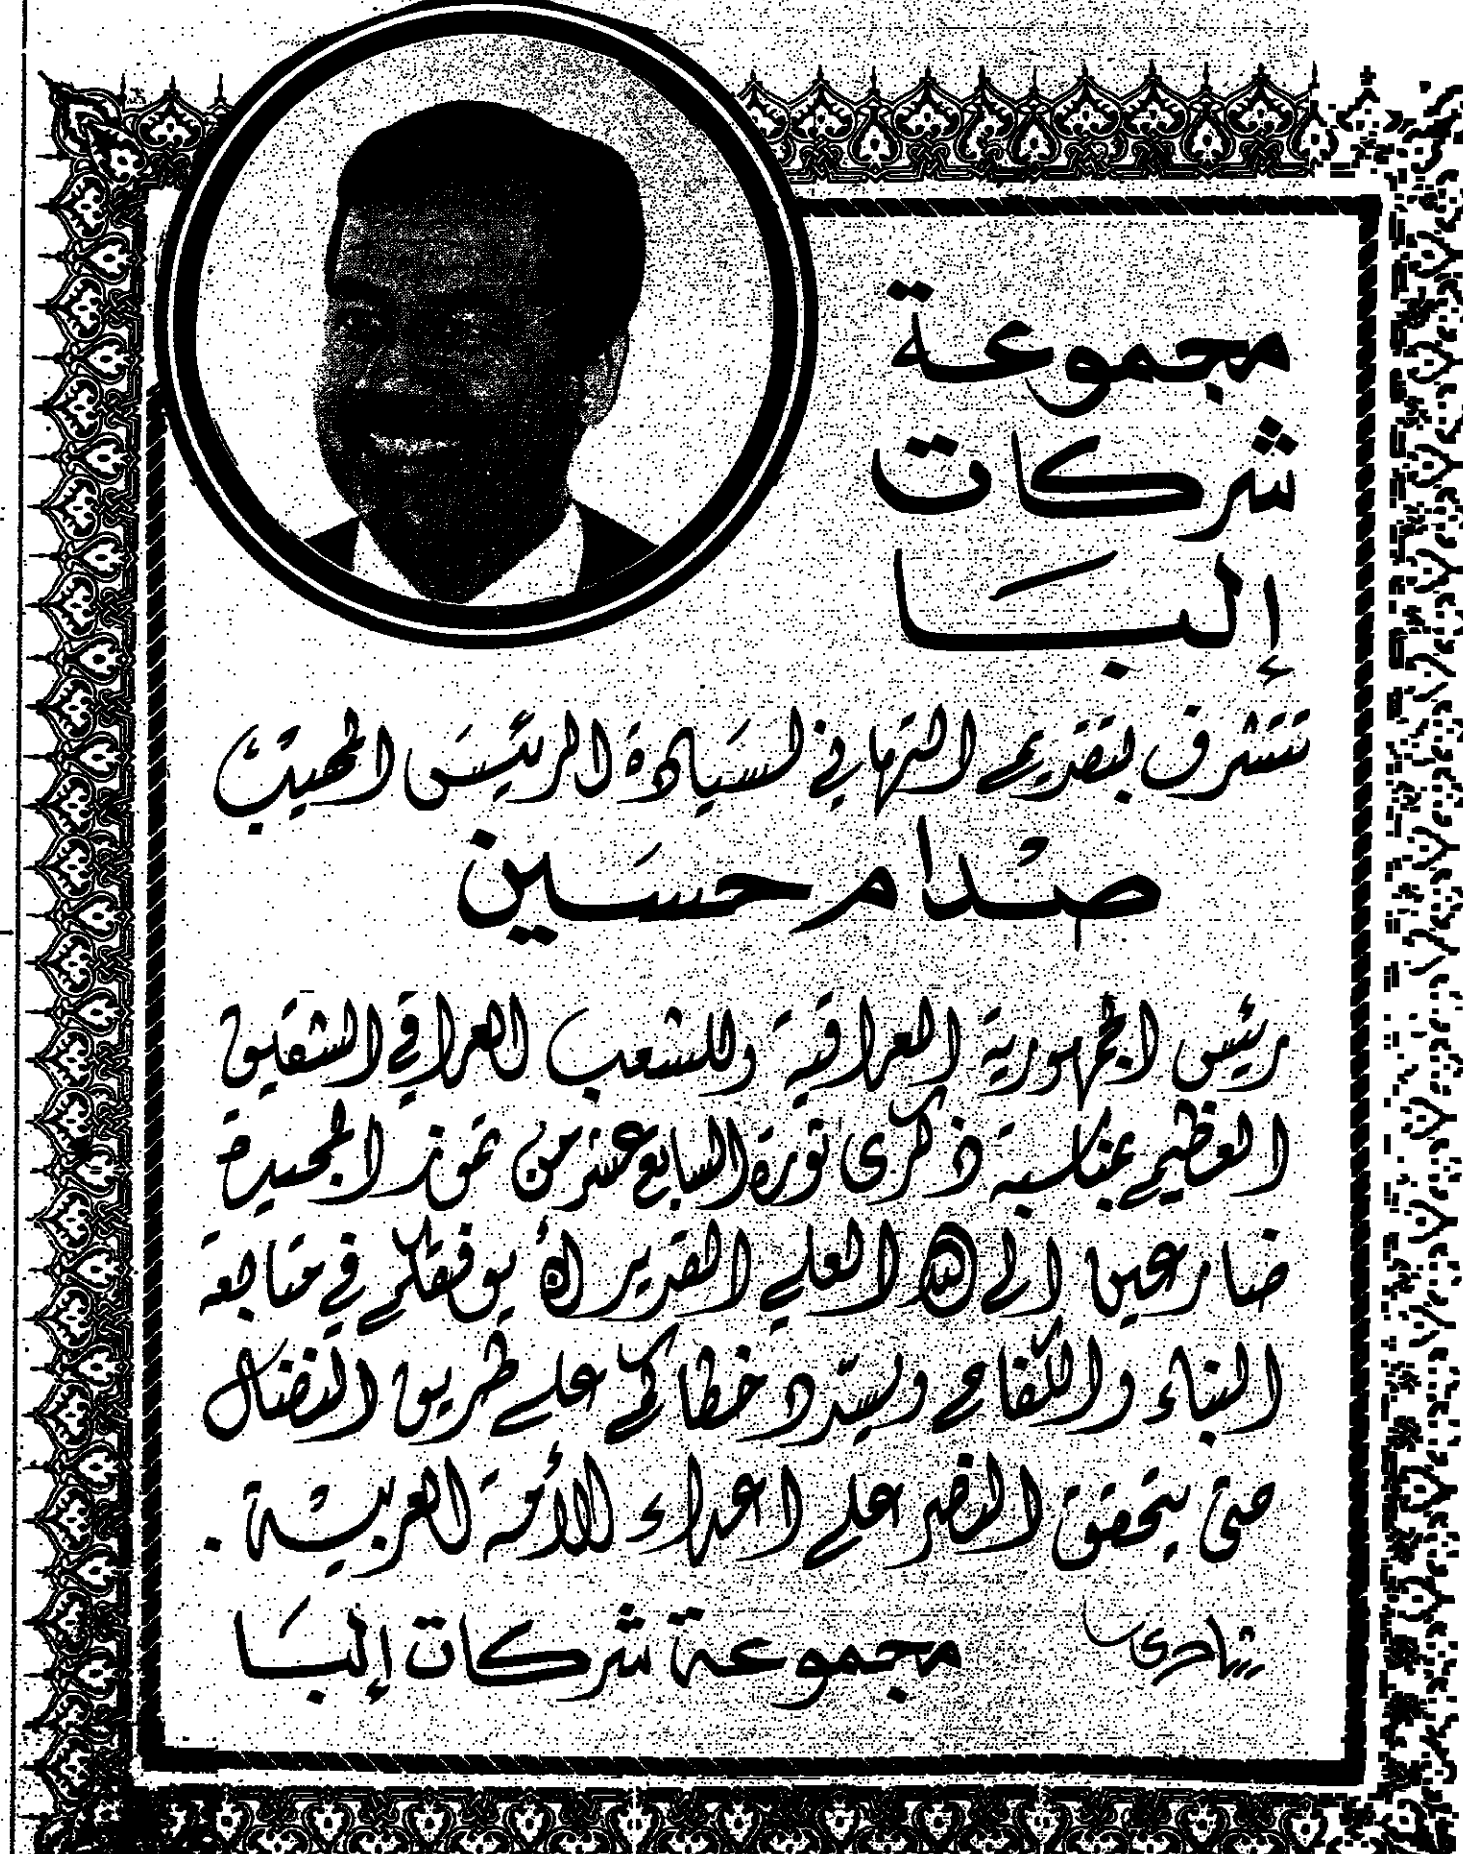 مجموعة
شركات
إلبا
تتشرف بتقديم التهاني لسيادة الرئيس المهيب
صدام حسين
رئيس الجمهورية العراقية وللشعب العراقي الشقيق
العظيم بمناسبة ذكرى ثورة السابع عشر من تموز المجيدة
ضارعين الى الله العلي القدير أن يوفقكم في متابعة
البناء والكفاح ويسدّد خطاكم على طريق النضال
حتى يتحقق النصر على اعداء الأمة العربية .
مجموعة شركات إلبا